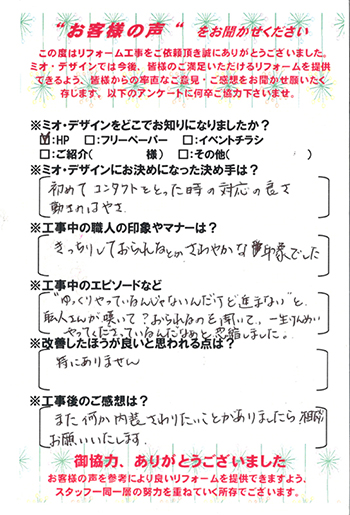 “お客様の声“ をお聞かせください
この度はリフォーム工事をご依頼頂き誠にありがとうございました。
ミオ・デザインでは今後、皆様のご満足いただけるリフォームを提供
できるよう、皆様からの率直なご意見・ご感想をお聞かせ願いたく
存じます。以下のアンケートに何卒ご協力下さいませ。
※ミオ・デザインをどこでお知りになりましたか？
☑:HP □:フリーペーパー □:イベントチラシ
□:ご紹介( 様) □:その他( )
※ミオ・デザインにお決めになった決め手は？
初めてコンタクトをとった時の対応の良さ
動きのはやさ
※工事中の職人の印象やマナーは？
きっちりしておられるとのさわやかな印象でした
※工事中のエピソードなど
“ゆっくりやっているんじゃないんだけど進まない”と
職人さんが嘆いて？おられるのを聞いて、一生けんめい
やってくださっているんだなぁと恐縮しました。
※改善したほうが良いと思われる点は？
特にありません
※工事後のご感想は？
また何か内装さわりたいことがありましたら相談
お願いいたします
御協力、ありがとうございました
お客様の声を参考により良いリフォームを提供できますよう、
スタッフ一同一層の努力を重ねていく所存でございます。